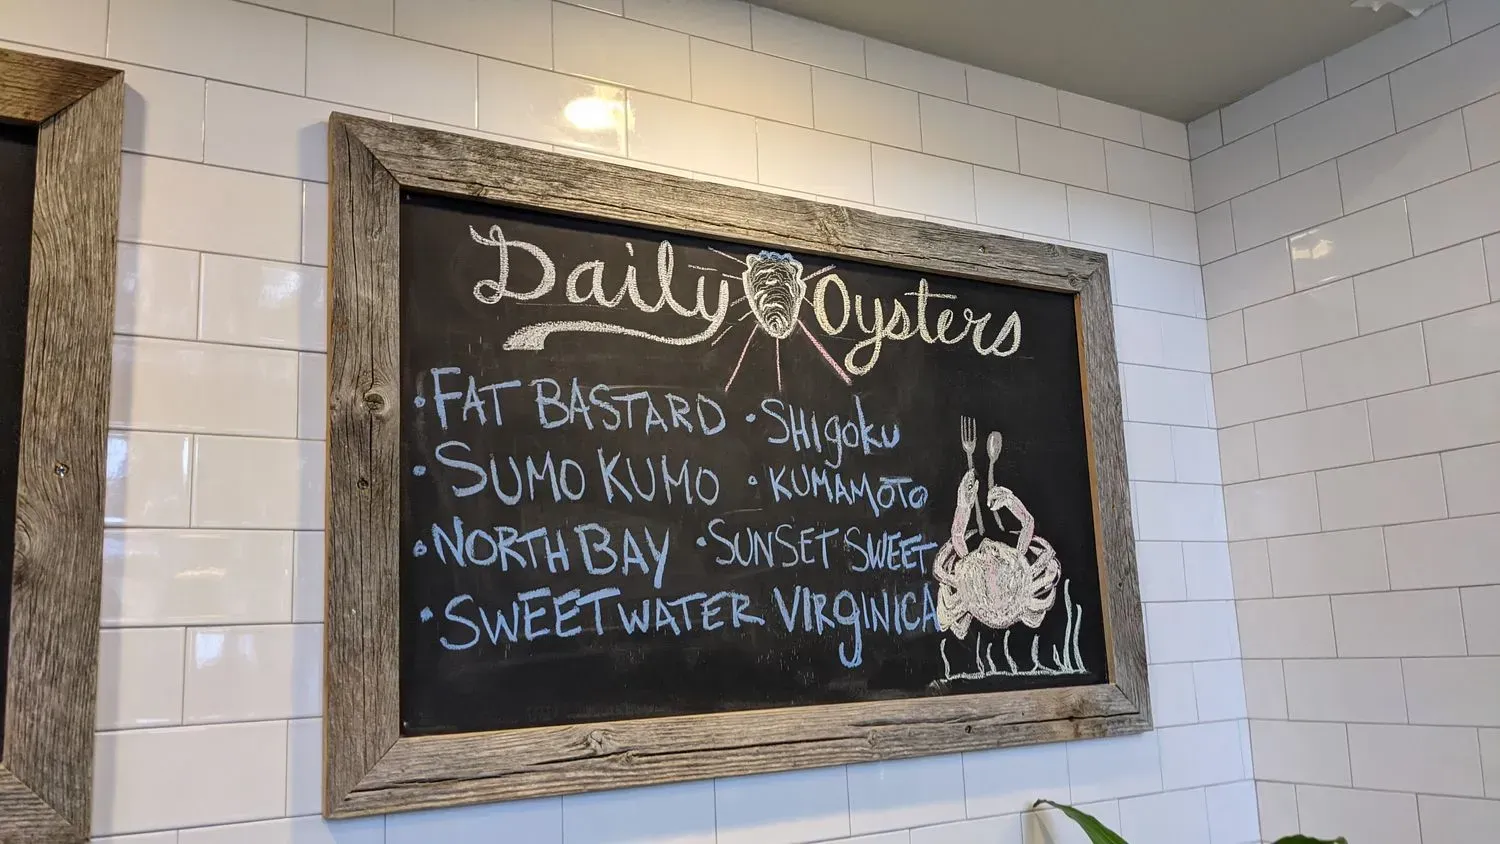 Daily Oysters
• FAT BASTARD • SHIgoku
• SUMO KUMO • KUMAMOTO
• NORTH BAY • SUNSET SWEET
• SWEETWATER VIRgINICA